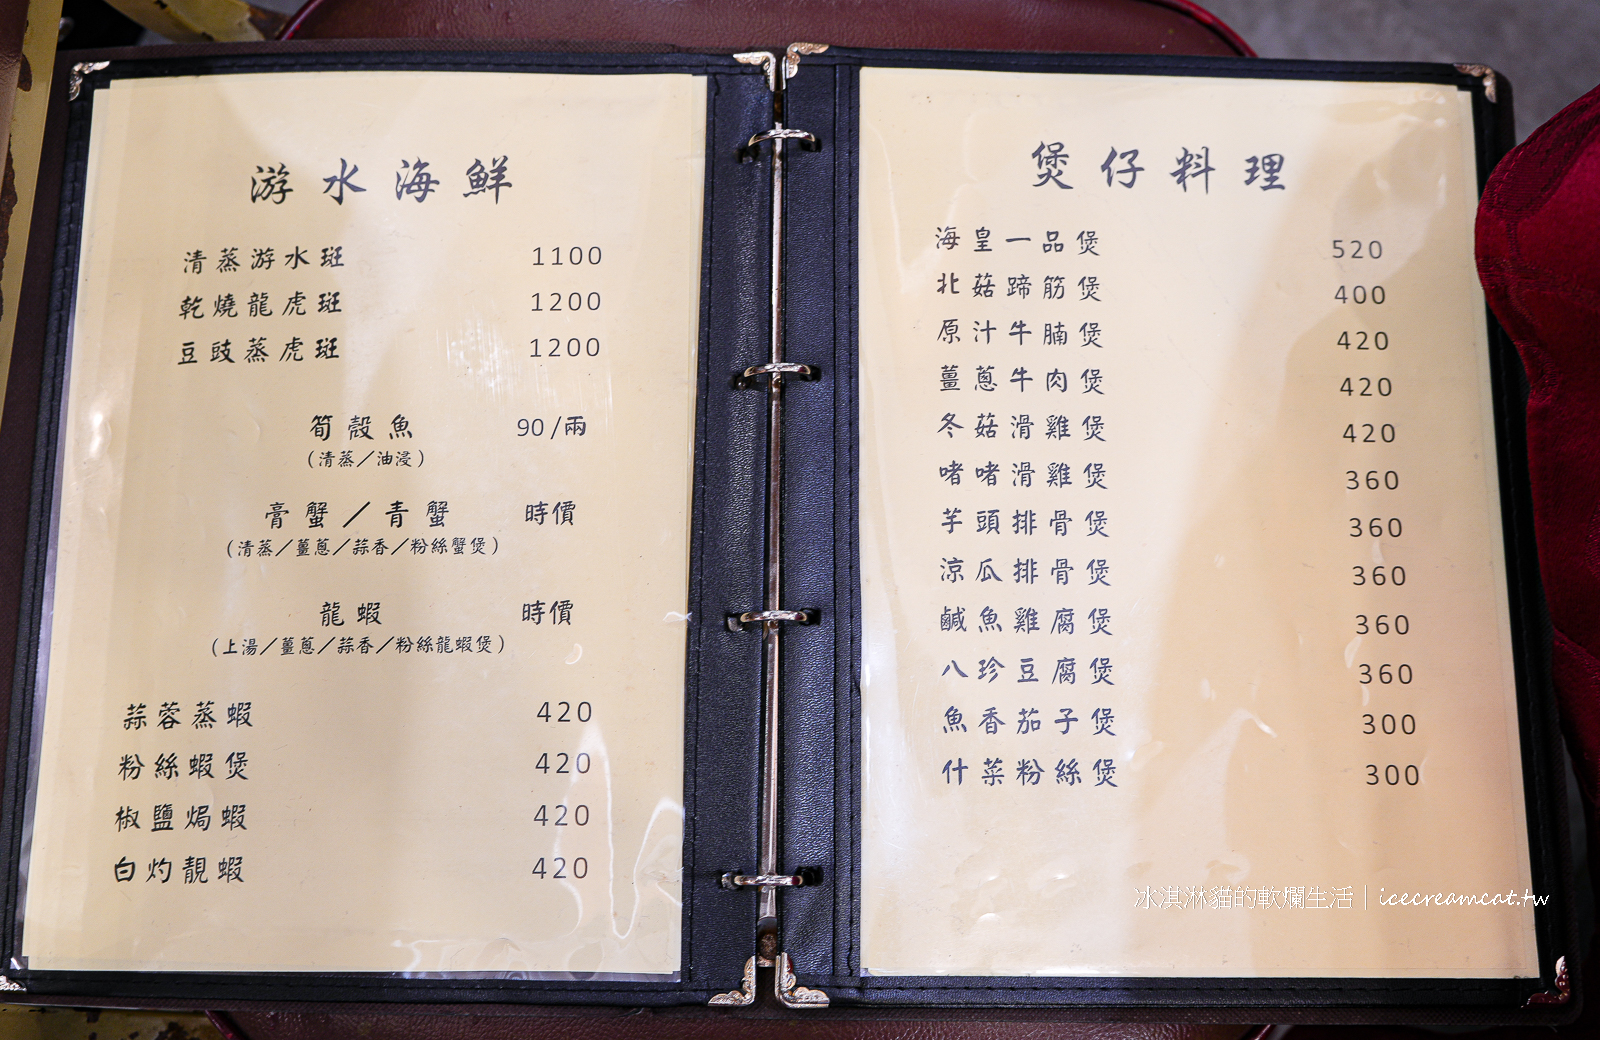 游水海鮮
清蒸游水斑 1100
乾燒龍虎斑 1200
豆豉蒸虎斑 1200
筍殼魚 90/兩
(清蒸／油浸)
膏蟹／青蟹 時價
(清蒸／薑蔥／蒜香／粉絲蟹煲)
龍蝦 時價
(上湯／薑蔥／蒜香／粉絲龍蝦煲)
蒜蓉蒸蝦 420
粉絲蝦煲 420
椒鹽焗蝦 420
白灼靚蝦 420
煲仔料理
海皇一品煲 520
北菇蹄筋煲 400
原汁牛腩煲 420
薑蔥牛肉煲 420
冬菇滑雞煲 420
啫啫滑雞煲 360
芋頭排骨煲 360
涼瓜排骨煲 360
鹹魚雞腐煲 360
八珍豆腐煲 360
魚香茄子煲 300
什菜粉絲煲 300
冰淇淋貓的軟爛生活｜icecreamcat.tw